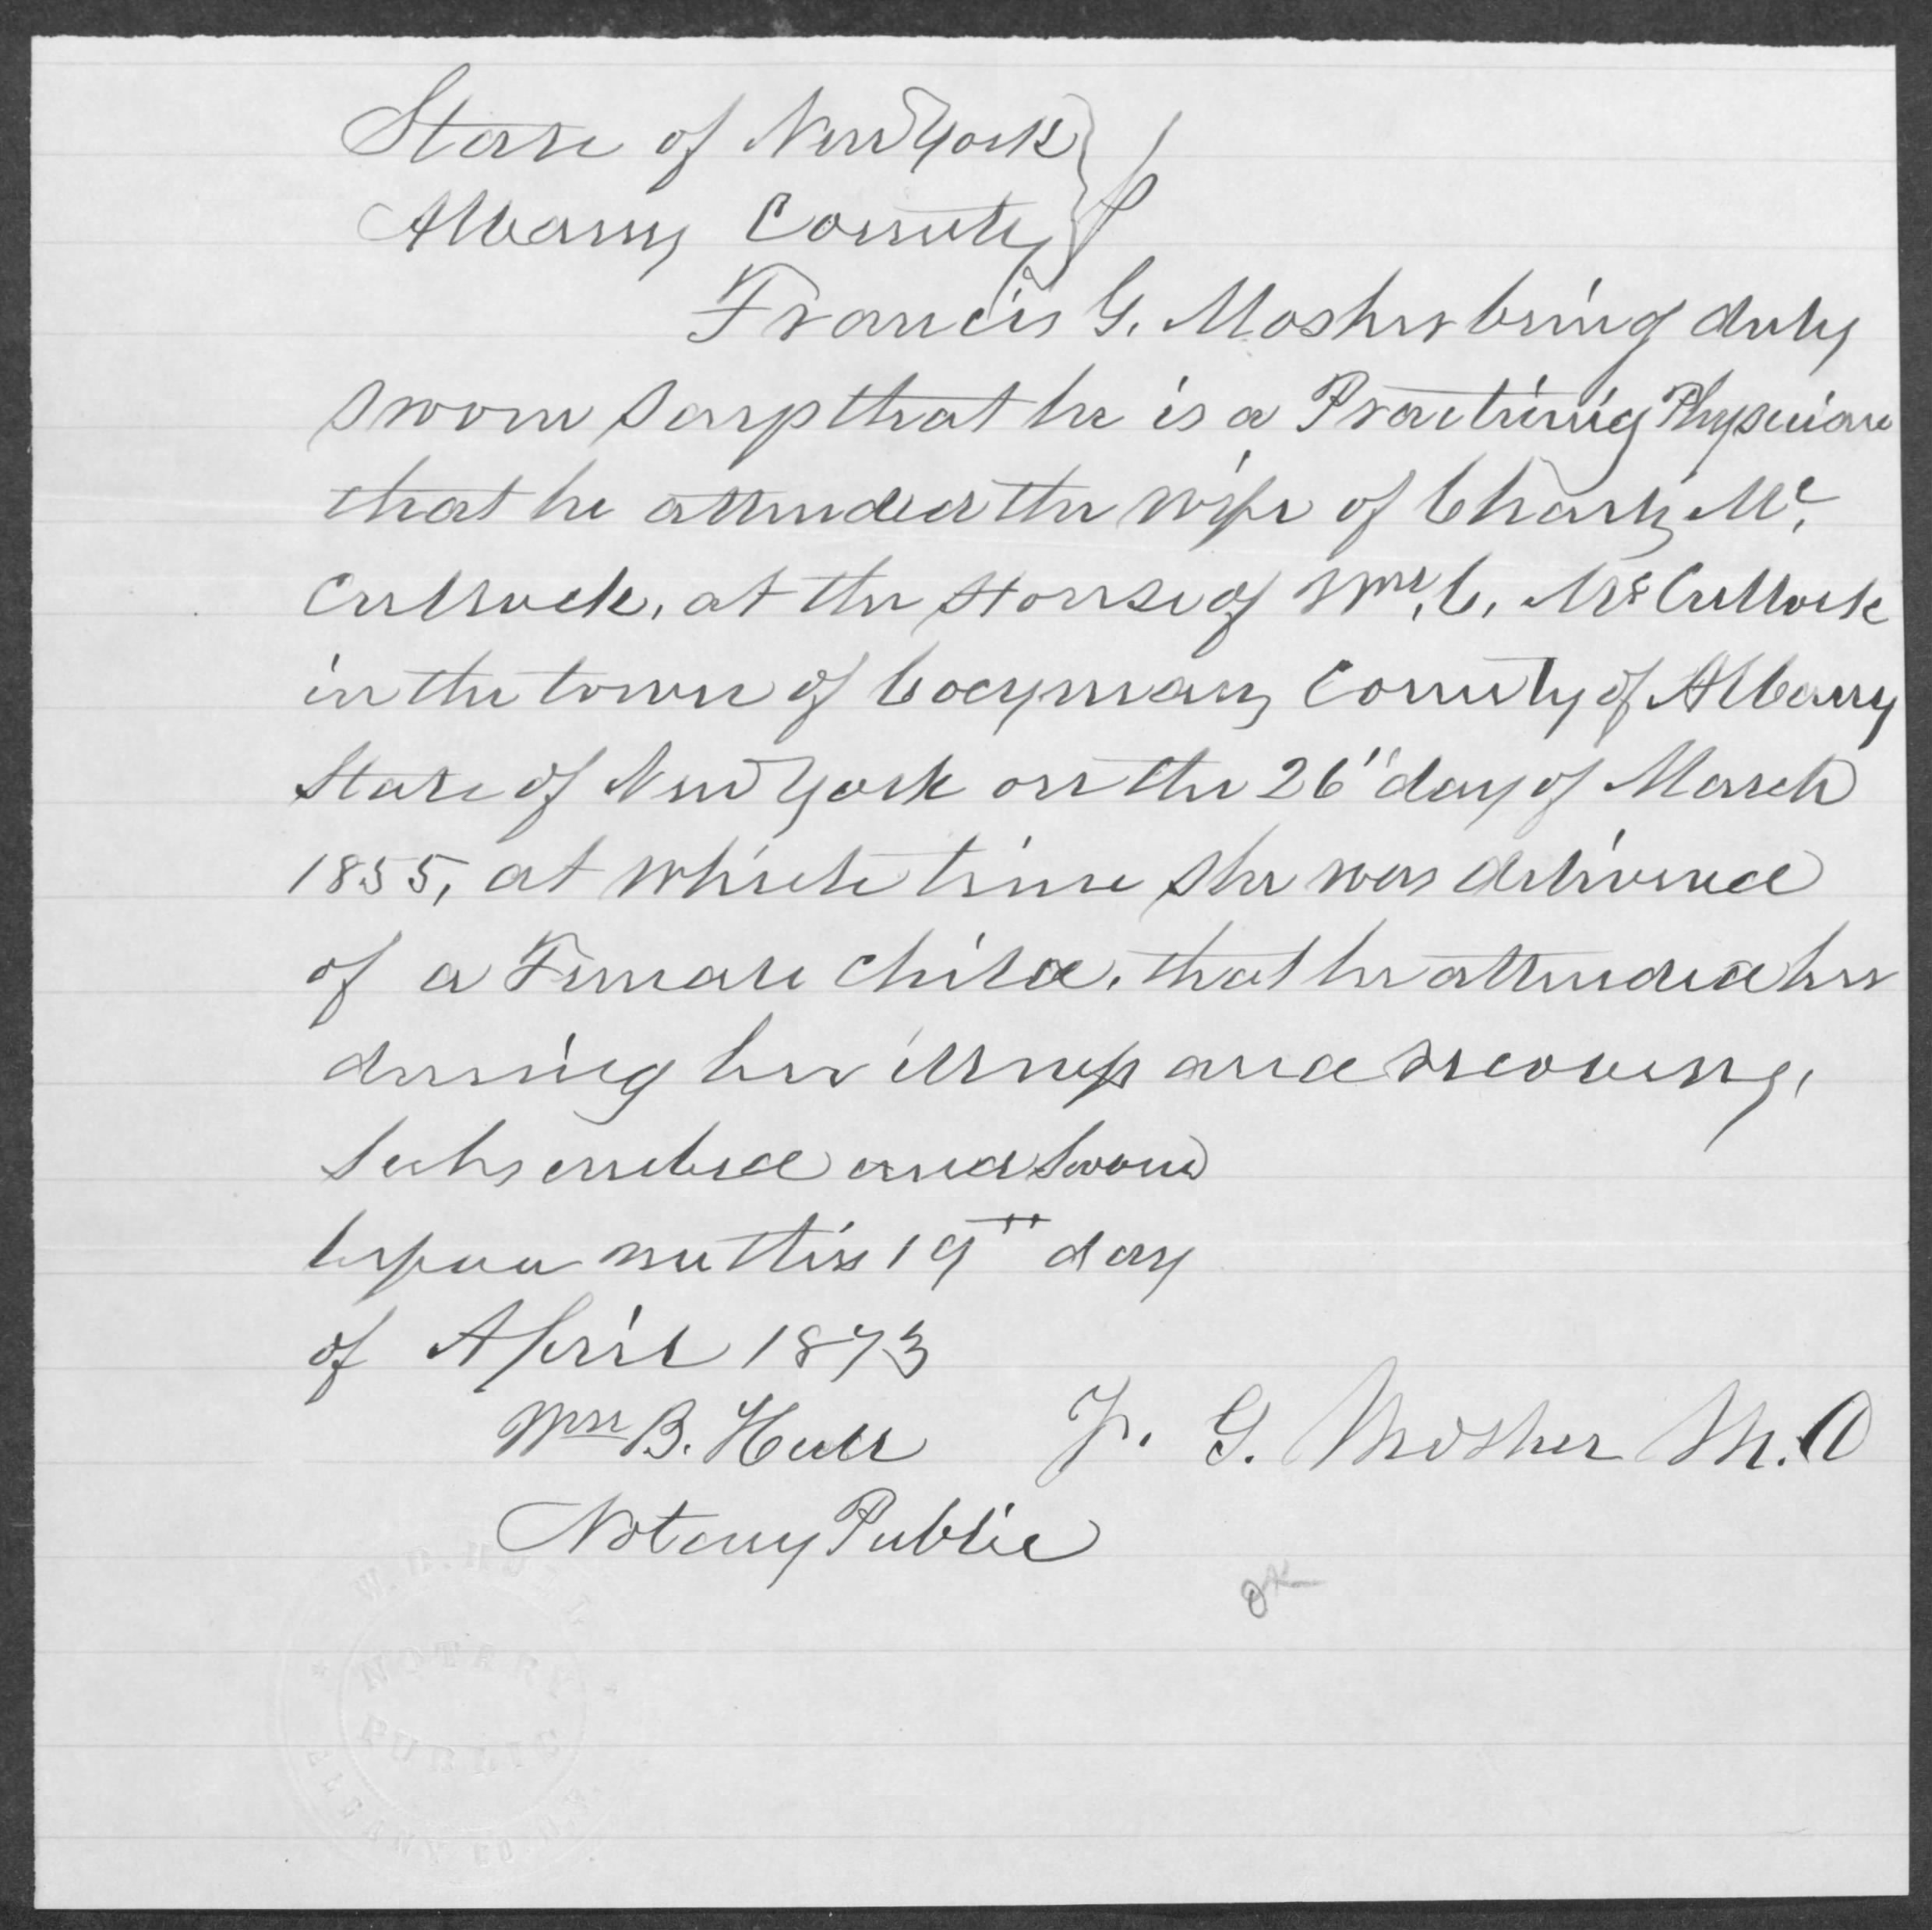 State of New York }
Albany County } ss
Francis G. Mosher being duly
sworn says that he is a Practicing Physician
that he attended the wife of Charles Mc.
Cullock, at the House of Wm. C. McCullock
in the town of Coeymans County of Albany
State of New York on the 26" day of March
1855, at which time she was delivered
of a Female child, that he attended her
during her illness and recovery,
Subscribed and Sworn
before me this 19" day
of April 1873
Wm B. Hull F. G. Mosher M.D
Notary Public
OK
W. B. HULL
NOTARY
PUBLIC
ALBANY CO. N.Y.